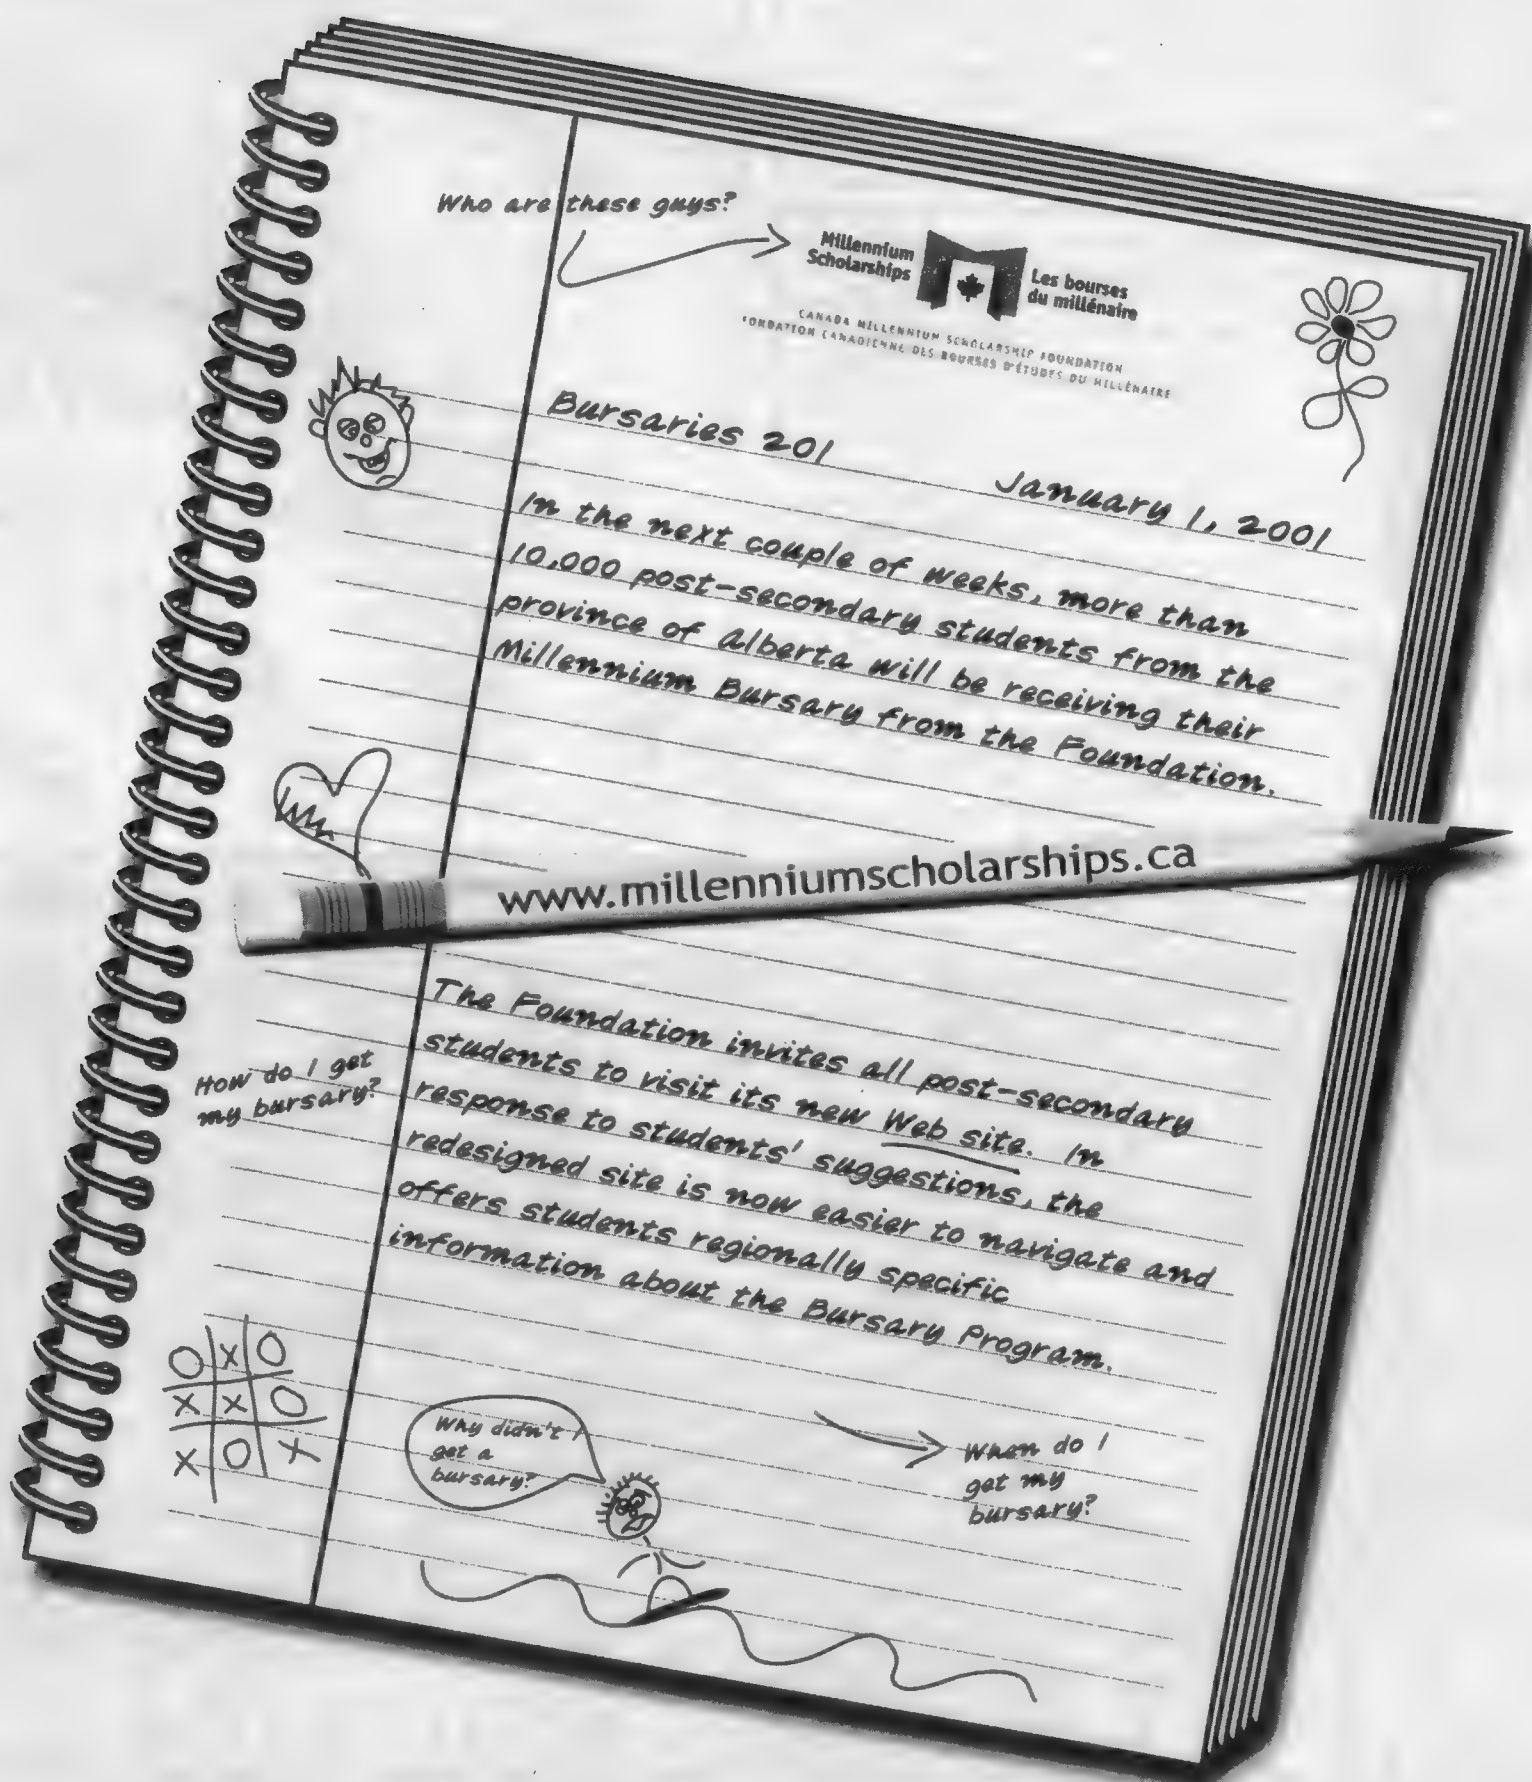 Who are these guys?
Millennium
Scholarships
Les bourses
du millénaire
CANADA MILLENNIUM SCHOLARSHIP FOUNDATION
FONDATION CANADIENNE DES BOURSES D'ÉTUDES DU MILLÉNAIRE
Bursaries 201
January 1, 2001
In the next couple of weeks, more than
10,000 post-secondary students from the
province of Alberta will be receiving their
Millennium Bursary from the Foundation.
www.millenniumscholarships.ca
The Foundation invites all post-secondary
students to visit its new Web site. In
response to students' suggestions, the
redesigned site is now easier to navigate and
offers students regionally specific
information about the Bursary Program.
How do I get
my bursary?
O X O
X X O
X O X
Why didn't I
get a
bursary?
When do I
get my
bursary?